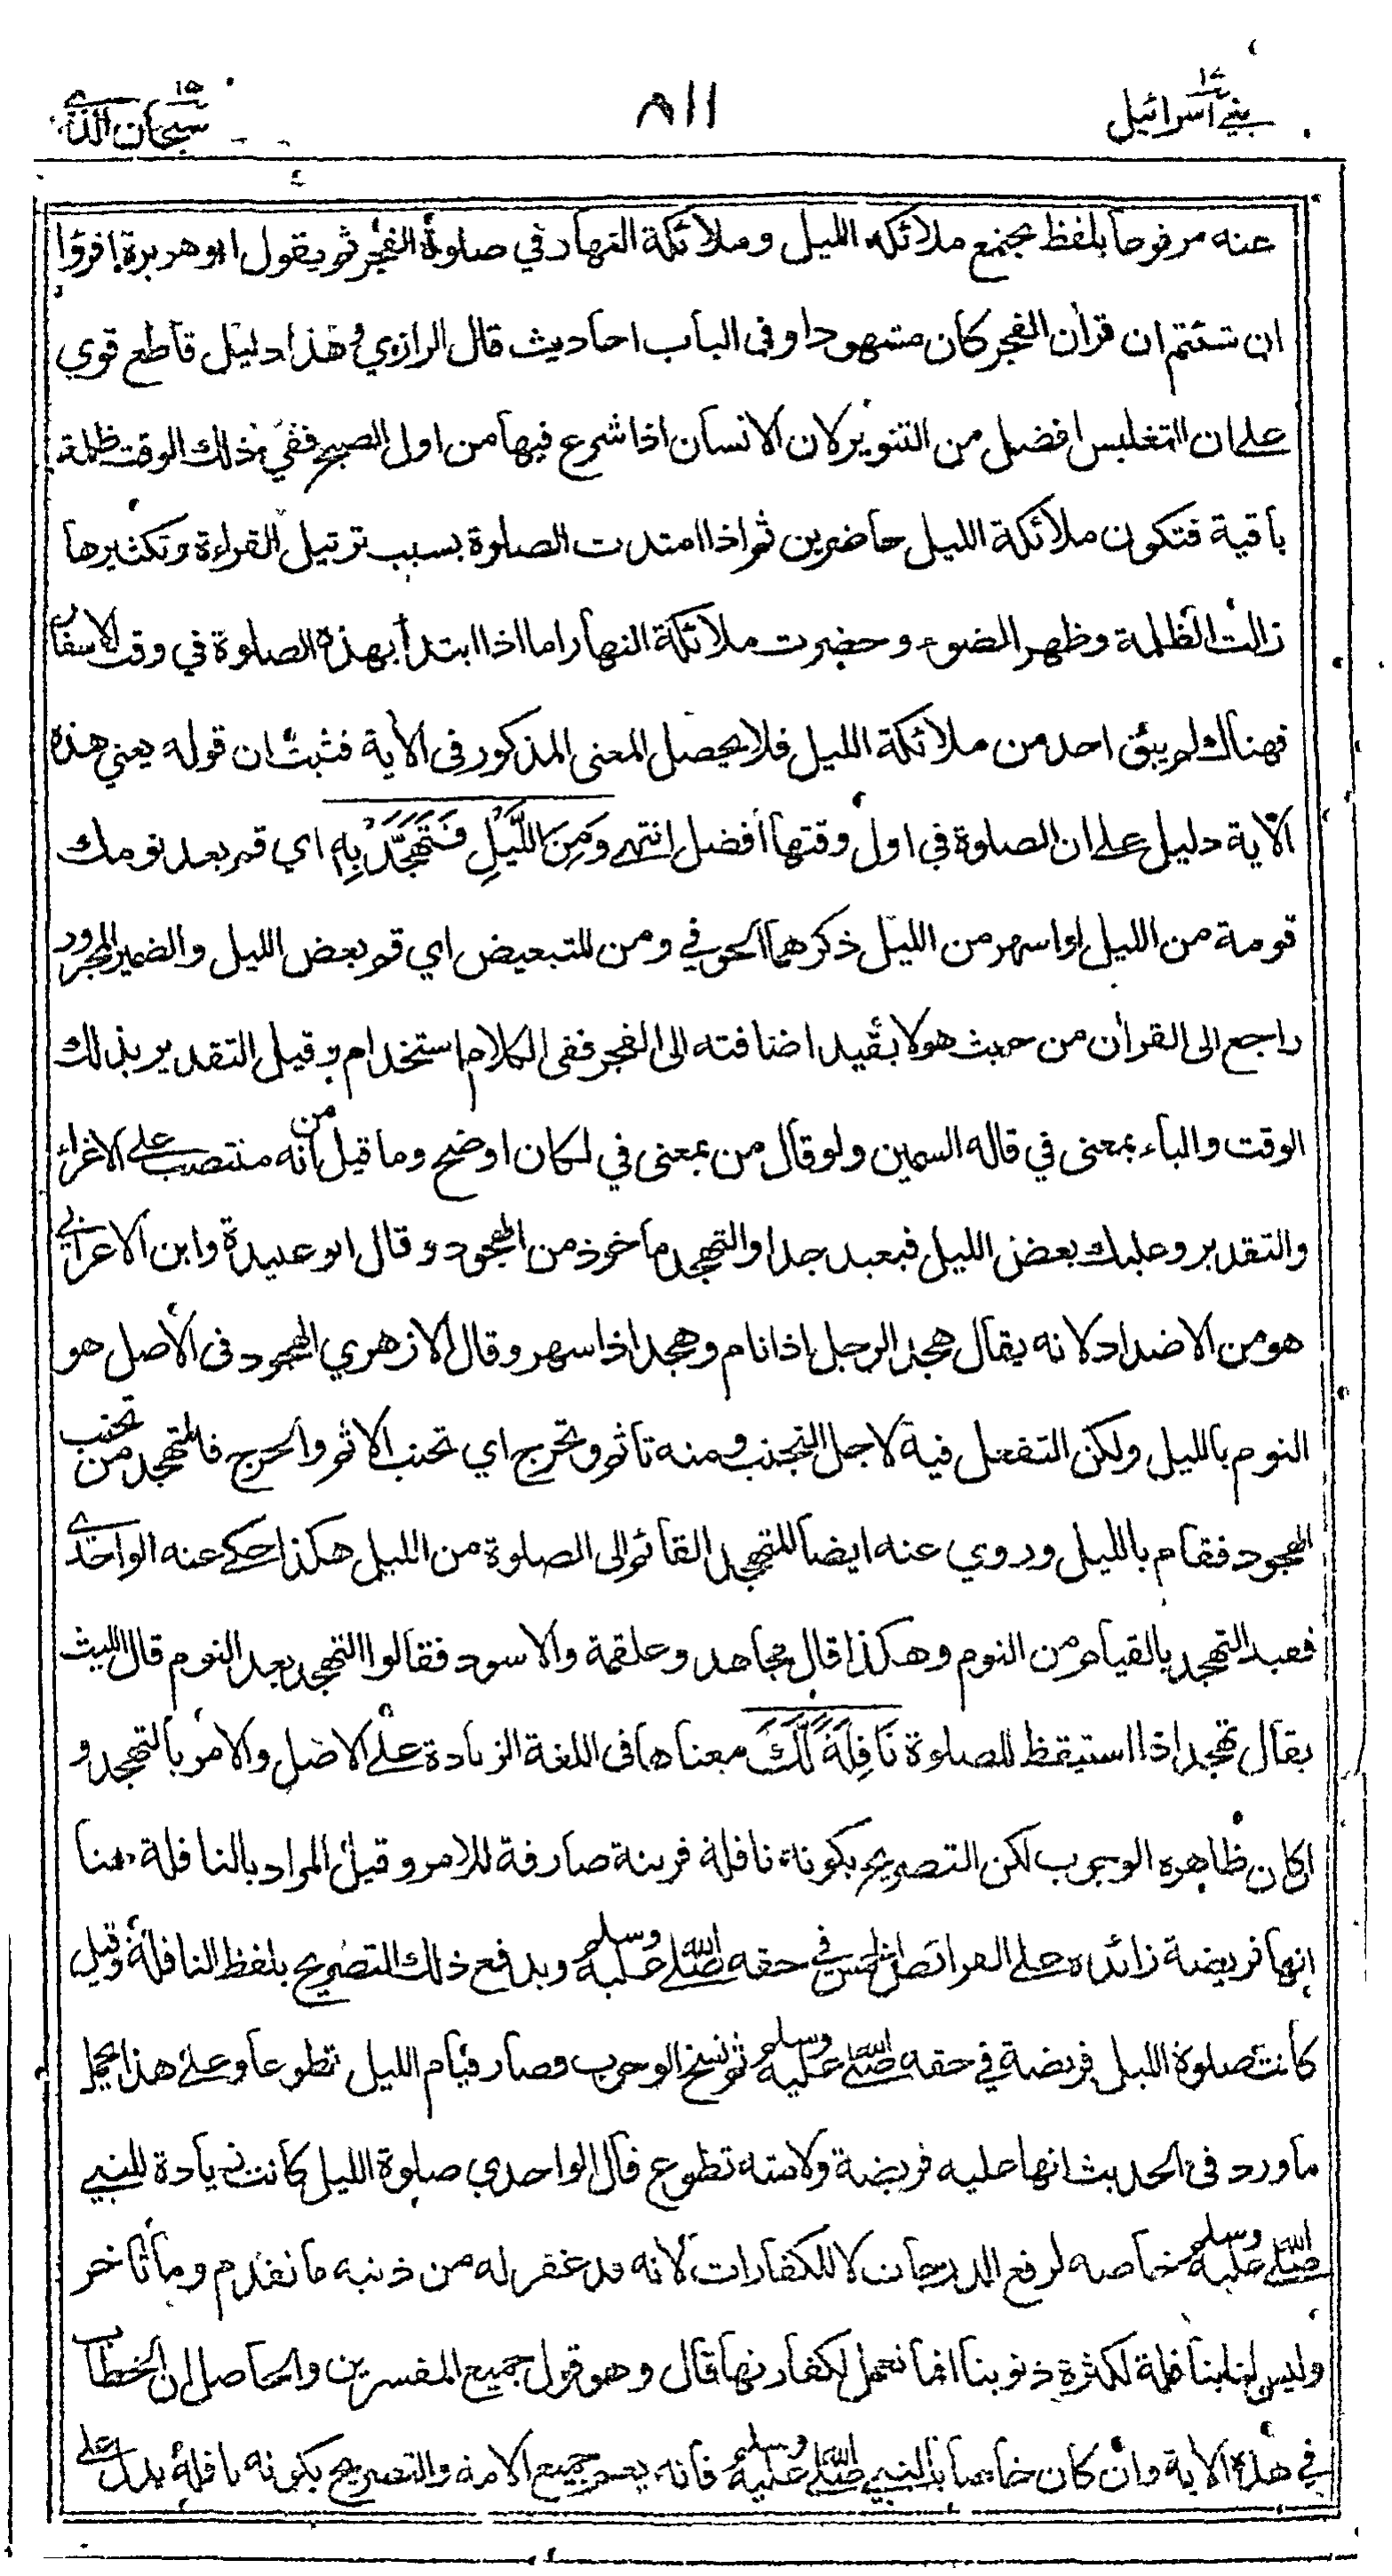 بني اسرائيل ١٧
٨١١
سبحان الذي ١٥
عنه مرفوعا بلفظ يجتمع ملائكة الليل وملائكة النهار في صلوة الفجر ثم يقول ابو هريرة اقرؤا
ان شئتم ان قران الفجر كان مشهودا وفي الباب احاديث قال الرازي وهذا دليل قاطع قوي
على ان التغليس افضل من التنوير لان الانسان اذا شرع فيها من اول الصبح ففي ذلك الوقت ظلمة
باقية فتكون ملائكة الليل حاضرين ثم اذا امتدت الصلوة بسبب ترتيل القراءة وتكثيرها
زالت الظلمة وظهر الضوء وحضرت ملائكة النهار اما اذا ابتدأ بهذه الصلوة في وقت الاسفار
فهناك لم يبق احد من ملائكة الليل فلا يحصل المعنى المذكور في الأية فثبت ان قوله يعني هذه
الأية دليل على ان الصلوة في اول وقتها أفضل انتهى وَمِنَ اللَّيْلِ فَتَهَجَّدْ بِهِ اي قم بعد نومك
قومة من الليل او اسهر من الليل ذكرهما الحوفي ومن للتبعيض اي قم بعض الليل والضمير المجرور
راجع الى القرأن من حيث هو لا بقيد اضافته الى الفجر ففي الكلام استخدام وقيل التقدير بذلك
الوقت والباء بمعنى في قاله السمين ولو قال من بمعنى في لكان اوضح وما قيل من انه منتصب على الاغراء
والتقدير وعليك بعض الليل فبعيد جدا والتهجد ماخوذ من الهجود وقال ابو عبيدة وابن الاعرابي
هو من الاضداد لانه يقال هجد الرجل اذا نام وهجد اذا سهر وقال الازهري الهجود في الأصل هو
النوم بالليل ولكن التفعل فيه لاجل التجنب ومنه تأثم وتحرج اي تجنب الاثم والحرج فالمتهجد من تجنب
الهجود فقام بالليل وروي عنه ايضا المتهجد القائم الى الصلوة من الليل هكذا حكى عنه الواحدي
فقيد التهجد بالقيام من النوم وهكذا قال مجاهد وعلقمة والاسود فقالوا التهجد بعد النوم قال الليث
يقال تهجد اذا استيقظ للصلوة نَافِلَةً لَّكَ معناها في اللغة الزيادة على الاصل والامر بالتهجد و
ان كان ظاهره الوجوب لكن التصريح بكونه نافلة قرينة صارفة للامر وقيل المراد بالنافلة هنا
انها فريضة زائدة على الفرائض الخمس في حقه صلى الله عليه وسلم ويدفع ذلك التصريح بلفظ النافلة وقيل
كانت صلوة الليل فريضة في حقه صلى الله عليه وسلم ثم نسخ الوجوب فصار قيام الليل تطوعا وعلى هذا يحمل
ما ورد في الحديث انها عليه فريضة ولامته تطوع قال الواحدي صلوة الليل كانت زيادة للنبي
صلى الله عليه وسلم خاصة لرفع الدرجات لا للكفارات لانه قد غفر له من ذنبه ما تقدم وما تأخر
وليس لنا بنافلة لكثرة ذنوبنا انما نعمل لكفارتها قال وهو قول جميع المفسرين والحاصل ان الخطاب
في هذه الأية وان كان خاصا بالنبي صلى الله عليه وسلم فانه يعم جميع الامة والتصريح بكونه نافلة يدل على